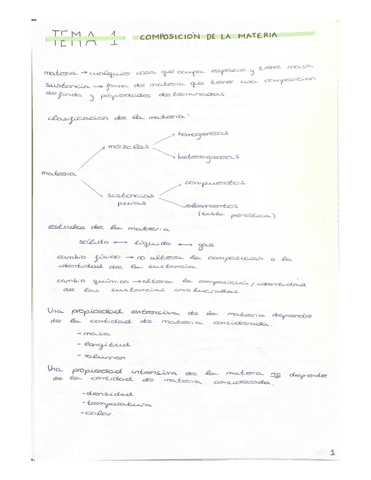 TEMA 1 COMPOSICIÓN DE LA MATERIA
materia → cualquier cosa que ocupa espacio y tiene masa
sustancia → forma de materia que tiene una composición
definida y propiedades determinadas
clasificación de la materia:
homogéneas
mezclas
heterogéneas
materia
compuestos
sustancias
puras
elementos
(tabla periódica)
estados de la materia
sólido ↔ líquido ↔ gas
cambio físico → no altera la composición o la
identidad de la sustancia.
cambio químico → altera la composición/identidad
de las sustancias involucradas
Una propiedad extensiva de la materia depende
de la cantidad de materia considerada.
- masa
- longitud
- volumen
Una propiedad intensiva de la materia no depende
de la cantidad de materia considerada.
- densidad
- temperatura
- color
1